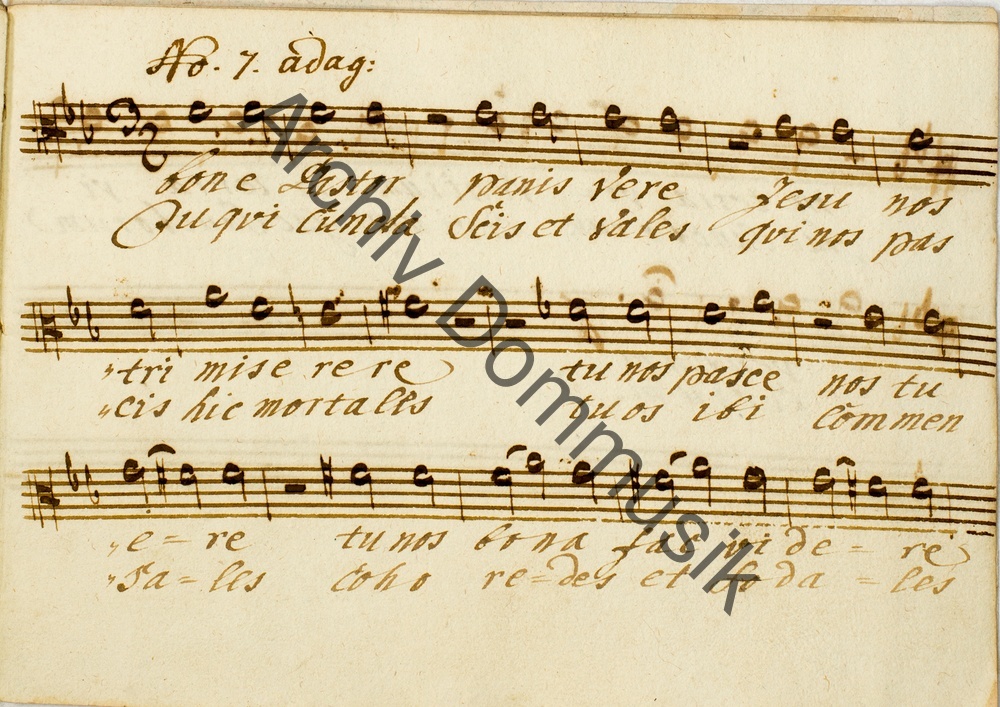 No. 7. adag:
bone Pastor panis vere Jesu nos
Tu qui cuncta Scis et Vales qui nos pas
tri mise re re tu nos pasce nos tu
cis hic mortales tuos ibi commen
e = re tu nos bona fac vi de = re
Sa = les coho re = des et So da = les
Archiv Dommusik